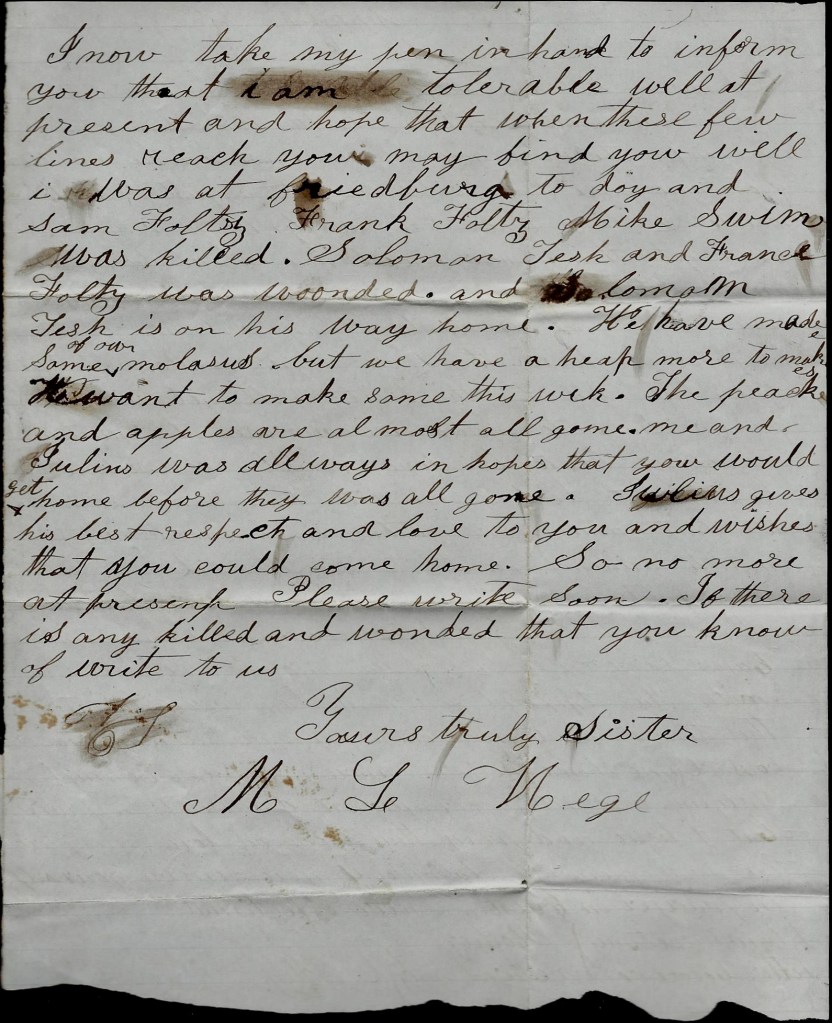 I now take my pen in hand to inform
you that i am tolerable well at
present and hope that when these few
lines reach you may find you well
i was at friedburg to day and
Sam Foltz Frank Foltz Mike Swim
was killed. Solomon Tesh and France
Foltz was woonded. and Solomom
Tesh is on his way home. We have made
Some of our molasus but we have a heap more to make
We want to make some this wek. The peaches
and apples are almost all gone. me and
Julius was allways in hopes that you would
get home before they was all gone. Julius gives
his best respect and love to you and wishes
that you could come home. So no more
at present Please write soon. If there
is any killed and wonded that you know
of write to us
Yours truly Sister
M L Hege